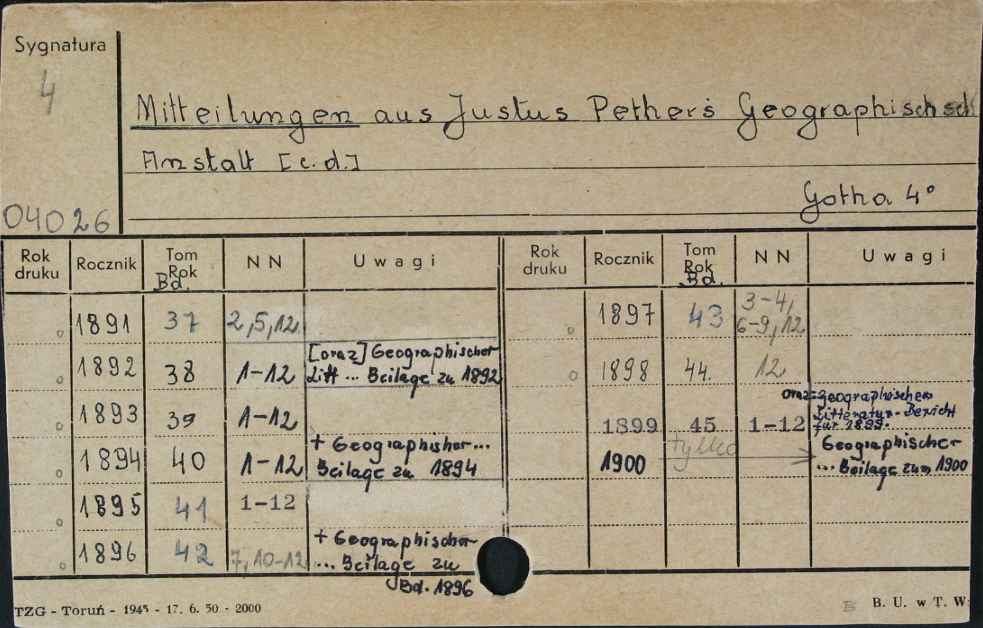 Sygnatura
4
04026
Mitteilungen aus Justus Pether's Geographisch sch
Anstalt [c.d.]
Gotha 4°
Rok druku Rocznik Tom Rok Bd. NN Uwagi
1891 37 2,5,12
1892 38 1-12 [oraz] Geographischer Litt ... Beilage zu 1892
1893 39 1-12
1894 40 1-12 + Geographisher... Beilage zu 1894
1895 41 1-12
1896 42 7,10-12 + Geographischer ... Beilage zu Bd. 1896
Rok druku Rocznik Tom Rok Bd. NN Uwagi
1897 43 3-4, 6-9,12
1898 44. 12
1899 45 1-12 oraz: Geographischer Litteratur-Bericht für 1899.
1900 tylko Geographischer ... Beilage zum 1900
TZG - Toruń - 1945 - 17. 6. 50 - 2000
B B. U. w T. W.